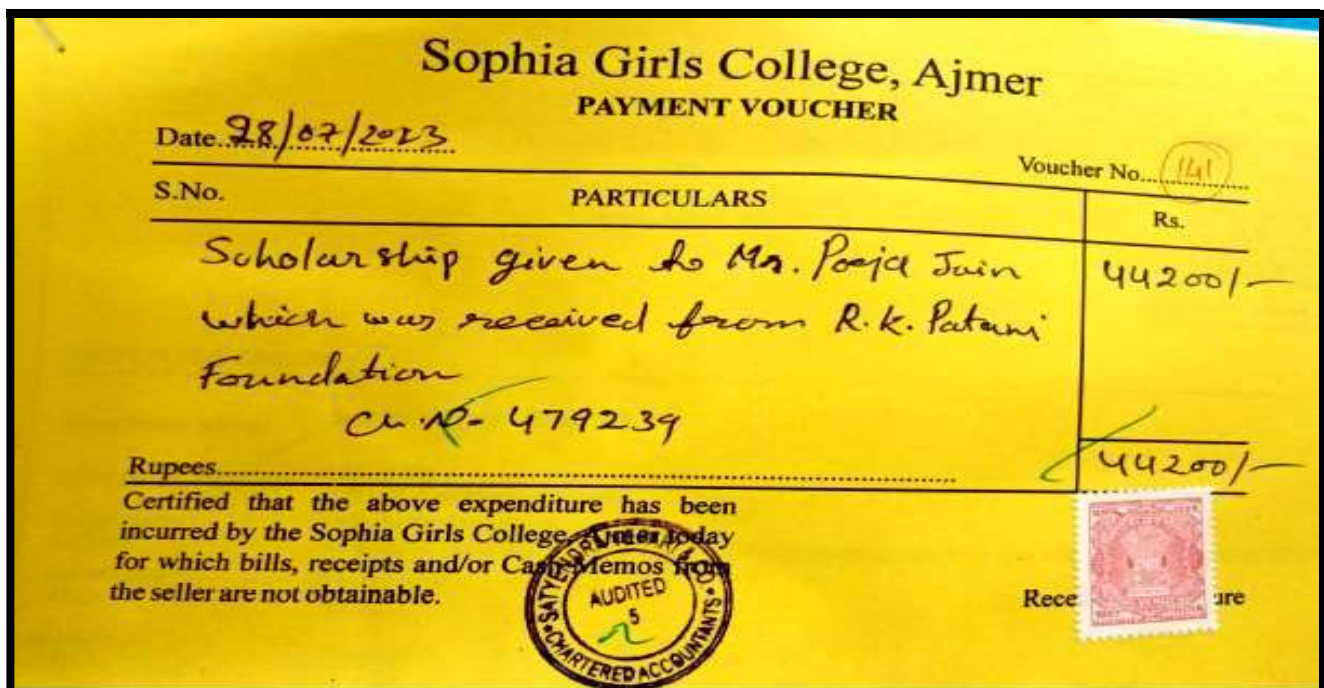 Sophia Girls College, Ajmer
PAYMENT VOUCHER
Date..28/07/2023
Voucher No....141
S.No. PARTICULARS Rs.
Scholarship given to Ms. Pooja Jain 44200/-
which was received from R.K. Patani
Foundation
Ch.No- 479239
Rupees.......... 44200/-
Certified that the above expenditure has been
incurred by the Sophia Girls College, Ajmer today
for which bills, receipts and/or Cash Memos from
the seller are not obtainable.
AUDITED
5
CHARTERED ACCOUNTANTS